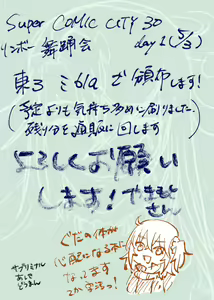 Super COMIC CITY 30
リンボー舞踏会 day1(5/3)
東3 ミ61a で頒布します!
(予定よりも気持ち多めに刷りました。
残り分を通販に回します
よろしくお願い
します!やまもと
さん
ぐだの体が
心配になる本に
なってます
サブリミナル
あしや
どうまん